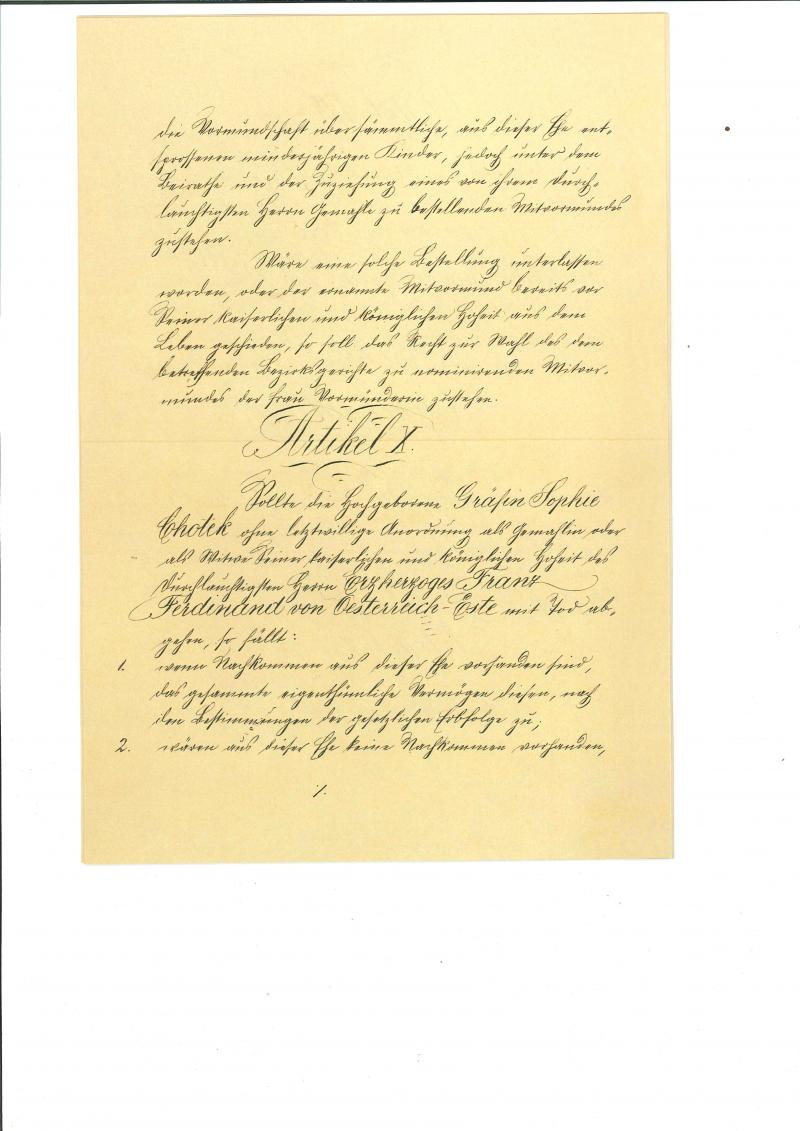 die Vormundschaft über sämmtliche, aus dieser Ehe ent-
sprossenen minderjährigen Kinder, jedoch unter dem
Beirathe und der Zuziehung eines von ihrem Durch-
lauchtigsten Herrn Gemahle zu bestellenden Mitvormundes
zustehen.
Wäre eine solche Bestellung unterlassen
worden, oder der ernannte Mitvormund bereits vor
Seiner kaiserlichen und königlichen Hoheit aus dem
Leben geschieden, so soll das Recht zur Wahl des dem
betreffenden Bezirksgerichte zu nominirenden Mitvor-
mundes der Frau Vormünderin zustehen.
Artikel X.
Sollte die Hochgeborene Gräfin Sophie
Chotek ohne letztwillige Anordnung als Gemahlin oder
als Witwe Seiner kaiserlichen und königlichen Hoheit des
Durchlauchtigsten Herrn Erzherzoges Franz
Ferdinand von Oesterreich-Este mit Tod ab-
gehen, so fällt:
1. wenn Nachkommen aus dieser Ehe vorhanden sind,
das gesammte eigenthümliche Vermögen diesen, nach
den Bestimmungen der gesetzlichen Erbfolge zu;
2. wären aus dieser Ehe keine Nachkommen vorhanden,
./.